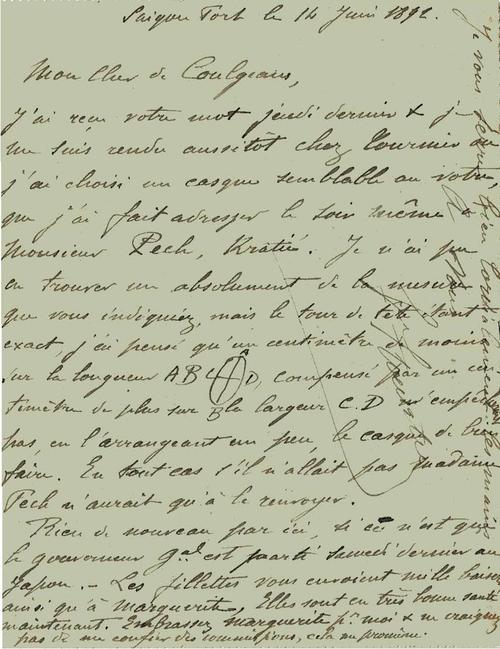 Saigon Port le 14 Juin 1892.
Mon cher de Coulgeans,
J'ai reçu votre mot jeudi dernier & je
me suis rendu aussitôt chez Tournier où
j'ai choisi un casque semblable au votre
que j'ai fait adresser le soir même à
Monsieur Pech, Kratié. Je n'ai pu
en trouver un absolument de la mesure
que vous indiquiez, mais le tour de tête étant
exact j'ai pensé qu'un centimètre de moins
sur la longueur A B compensé par un cen-
timètre de plus sur la largeur C.D n'empêche
pas en l'arrangeant un peu le casque de bien
faire. En tout cas s'il n'allait pas madame
Pech n'aurait qu'à le renvoyer.
Rien de nouveau par ici, si ce n'est que
le gouverneur Gal est parti samedi dernier au
Japon. - Les fillettes vous envoient mille baisers
ainsi qu'à Marguerite, Elles sont en très bonne santé
maintenant. Embrassez Marguerite pr moi & ne craignez
pas de me confier des commissions, cela me promène.
Je vous serre bien cordialement les mains